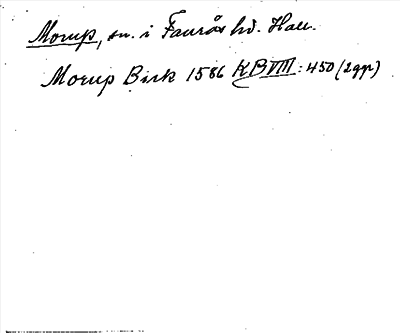 Morup, sn. i Faurås hd. Hall.
Morup Birk 1586 KBVIII: 450 (2gp)